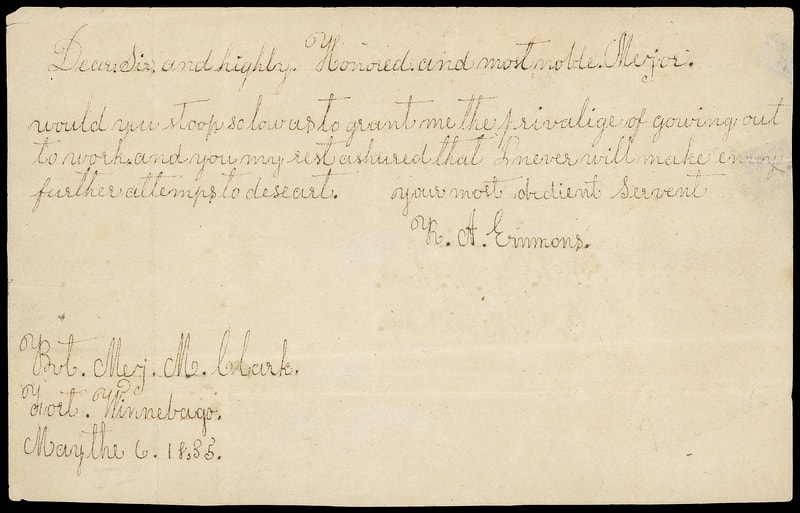 Dear. Sir. and highly. Honored. and most noble. Merjor.
would you stoop so low as to grant me the privalige of gowing out
to work. and you my rest ashured that I never will make enny
further attemps to deseart. your most obdient Servent
R. A. Emmons.
Bvt. Merj. M. Clark.
Fort. Winnebago.
May the 6. 1835.